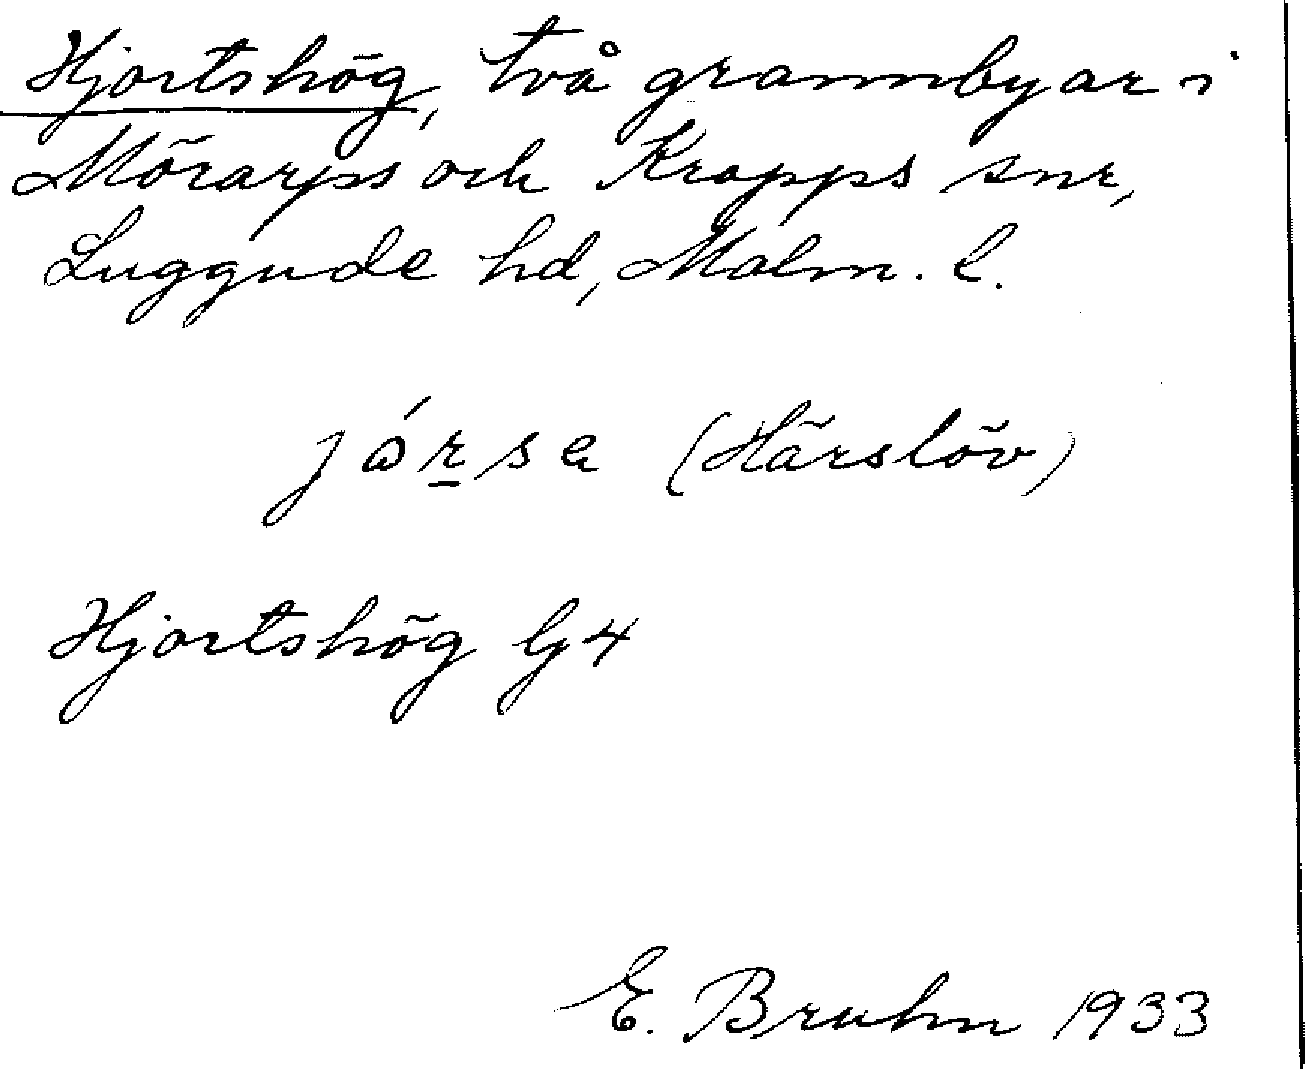 Hjortshög, två grannbyar i
Mörarps och Kropps snr,
Luggude hd, Malm. l.
jɷ́r̲sa (Härslöv)
Hjortshög Gj4
E. Bruhn 1933